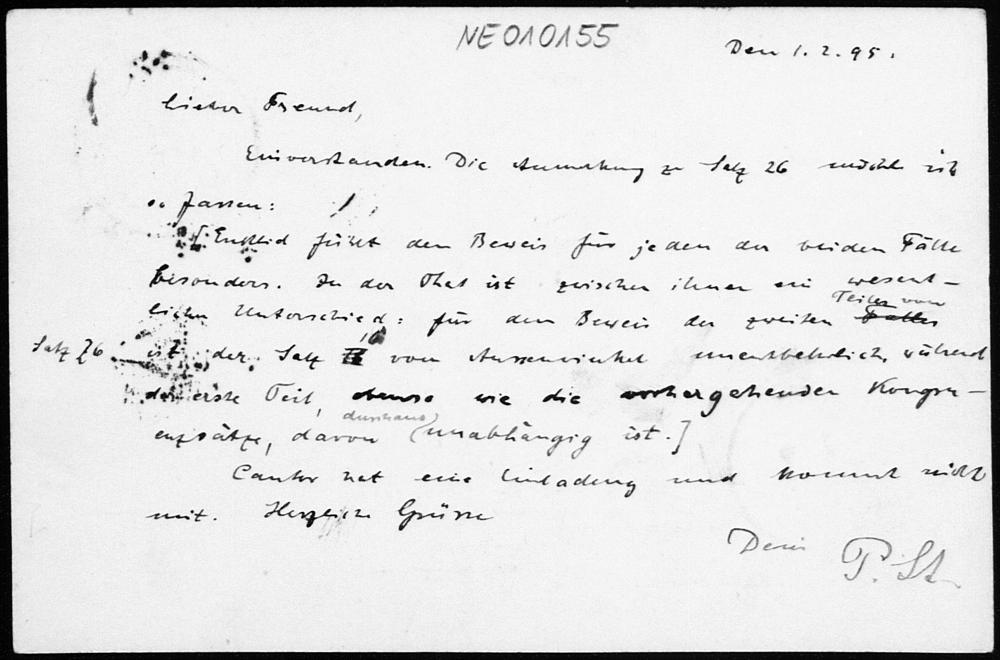 NE010155
Den 1.2.95.
Lieber Freund,
Einverstanden. Die Anmerkung zu Satz 26 möchte ich
so fassen:
[Euklid führt den Beweis für jeden der beiden Fälle
besonders. In der That ist zwischen ihnen ein wesent-
lichen Unterschied: für den Beweis des zweiten Falles
Teiles von
Satz 26 ist der Satz 16 vom Aussenwinkel unentbehrlich, während
der erste Teil, ebenso wie die vorhergehenden Kongru-
enzsätze, davon (unabhängig ist.]
durchaus
Cantor hat eine Einladung und kommt nicht
mit. Herzliche Grüsse
Dein P. St.